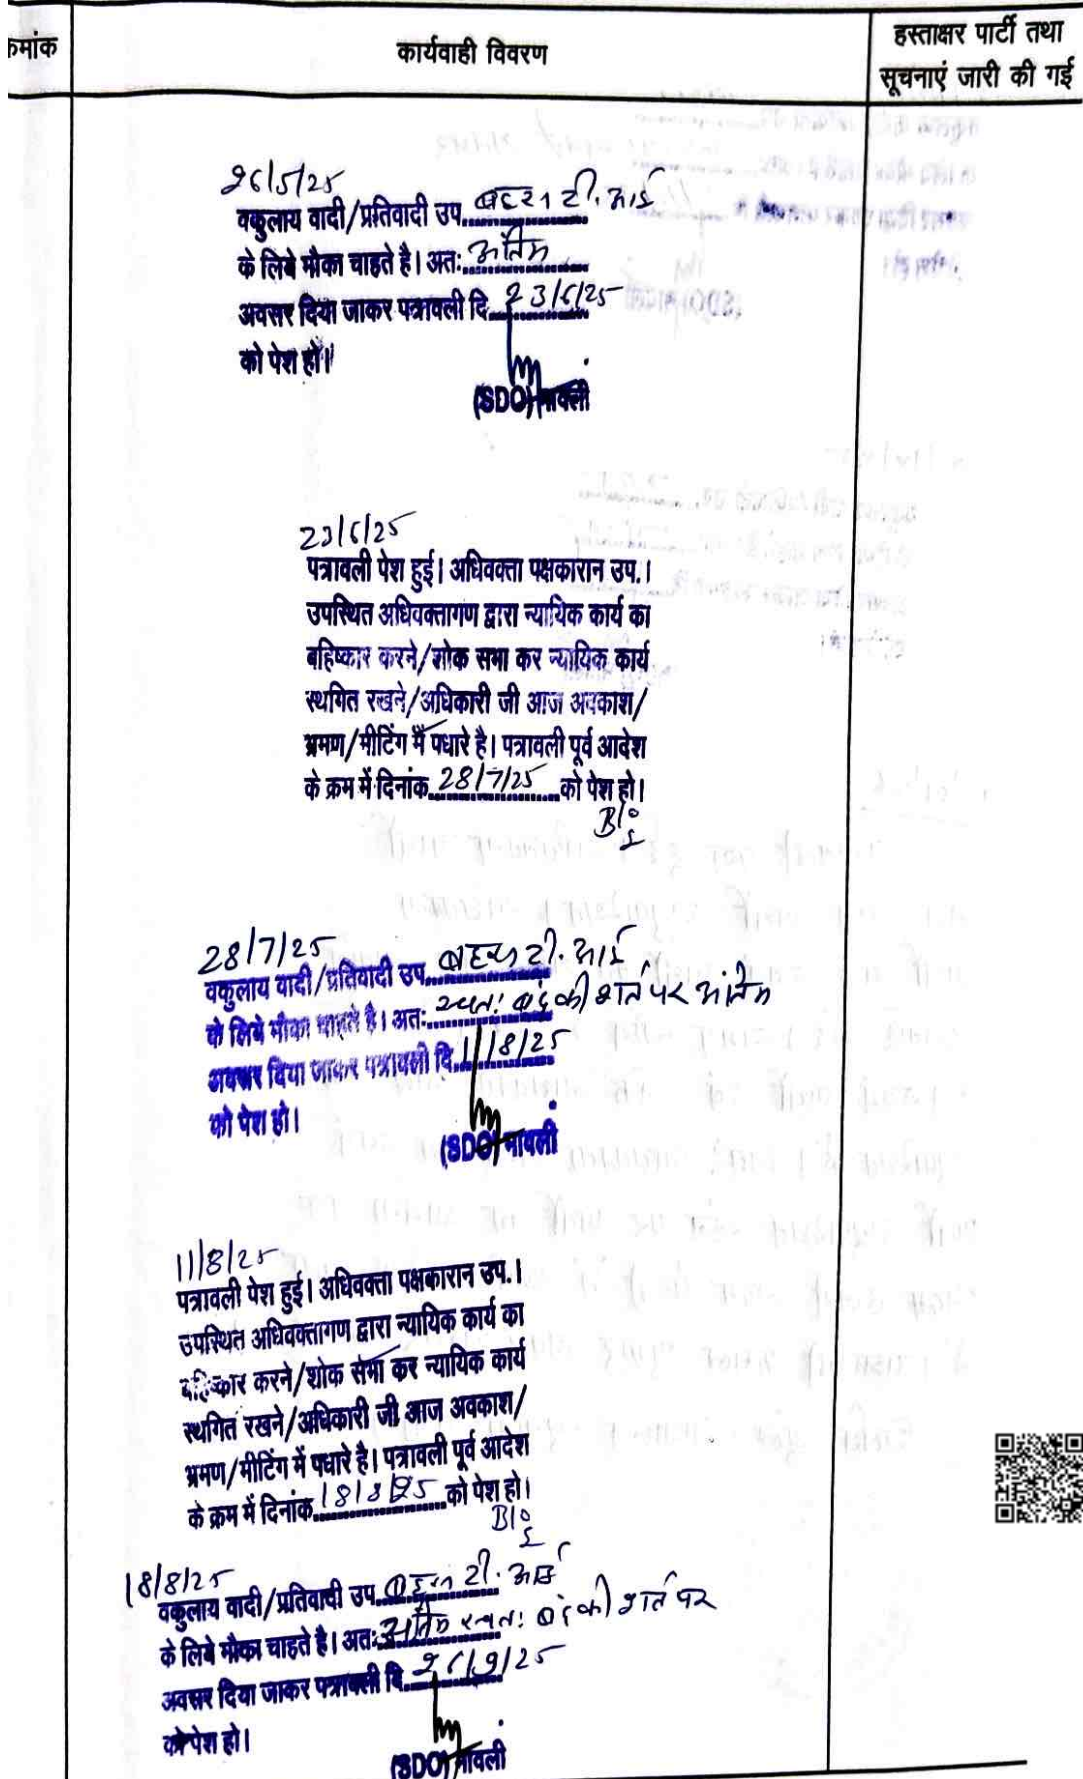 क्रमांक
कार्यवाही विवरण
हस्ताक्षर पार्टी तथा
सूचनाएं जारी की गई
26/5/25
वकुलाय वादी/प्रतिवादी उप. बहस टी. आई
के लिये मौका चाहते है। अतः अंतिम
अवसर दिया जाकर पत्रावली दि. 23/6/25
को पेश हो।
(SDO) मावली
23/6/25
पत्रावली पेश हुई। अधिवक्ता पक्षकारान उप.।
उपस्थित अधिवक्तागण द्वारा न्यायिक कार्य का
बहिष्कार करने/शोक सभा कर न्यायिक कार्य
स्थगित रखने/अधिकारी जी आज अवकाश/
भ्रमण/मीटिंग में पधारे है। पत्रावली पूर्व आदेश
के क्रम में दिनांक 28/7/25 को पेश हो।
B/o
28/7/25
वकुलाय वादी/प्रतिवादी उप. बहस टी. आई
के लिये मौका चाहते है। अतः स्वतः बंद की शर्त पर अंतिम
अवसर दिया जाकर पत्रावली दि. 11/8/25
को पेश हो।
(SDO) मावली
11/8/25
पत्रावली पेश हुई। अधिवक्ता पक्षकारान उप.।
उपस्थित अधिवक्तागण द्वारा न्यायिक कार्य का
बहिष्कार करने/शोक सभा कर न्यायिक कार्य
स्थगित रखने/अधिकारी जी आज अवकाश/
भ्रमण/मीटिंग में पधारे है। पत्रावली पूर्व आदेश
के क्रम में दिनांक 18/8/25 को पेश हो।
B/o
18/8/25
वकुलाय वादी/प्रतिवादी उप. बहस टी. आई
के लिये मौका चाहते है। अतः अंतिम स्वतः बंद की शर्त पर
अवसर दिया जाकर पत्रावली दि. 26/9/25
को पेश हो।
(SDO) मावली